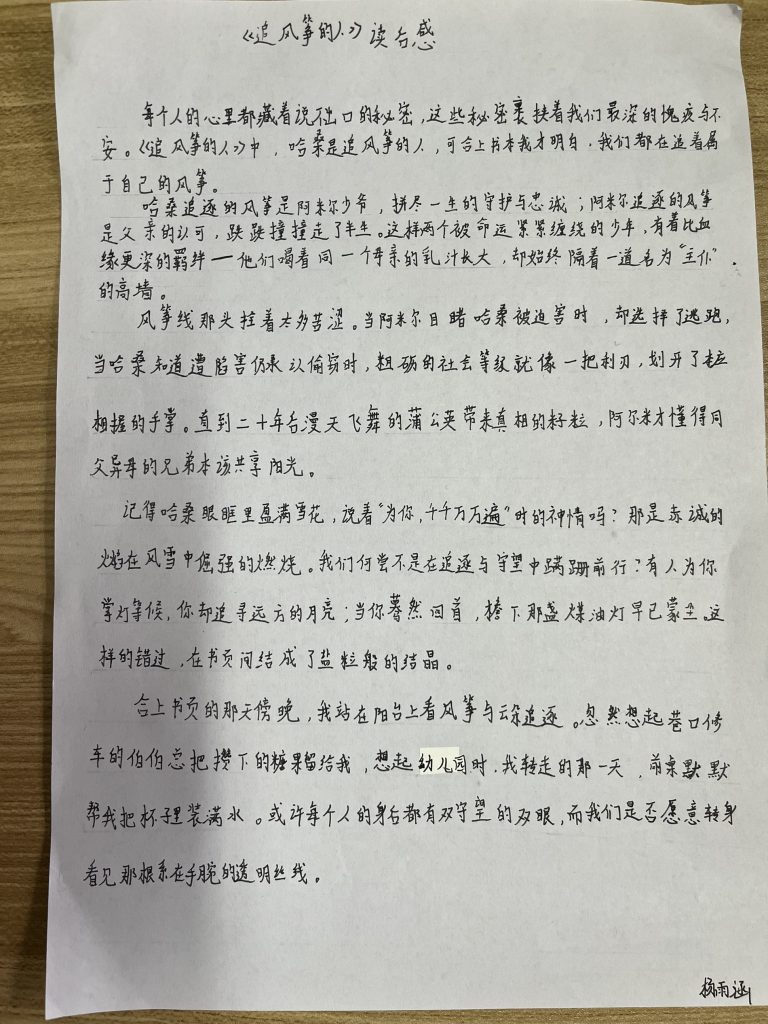 《追风筝的人》读后感
每个人的心里都藏着说不出口的秘密，这些秘密裹挟着我们最深的愧疚与不
安。《追风筝的人》中，哈桑是追风筝的人，可合上书本我才明白，我们都在追着属
于自己的风筝。
哈桑追逐的风筝是阿米尔少爷，拼尽一生的守护与忠诚；阿米尔追逐的风筝
是父亲的认可，跌跌撞撞走了半生。这样两个被命运紧紧缠绕的少年，有着比血
缘更深的羁绊—他们喝着同一个母亲的乳汁长大，却始终隔着一道名为“主仆”
的高墙。
风筝线那头拴着太多苦涩。当阿米尔目睹哈桑被迫害时，却选择了逃跑，
当哈桑知道遭陷害仍承认偷窃时，粗砺的社会等级就像一把利刃，划开了
相握的手掌。直到二十年后漫天飞舞的蒲公英带来真相的籽粒，阿尔米才懂得同
父异母的兄弟本该共享阳光。
记得哈桑眼眶里盈满雪花，说着“为你，千千万万遍”时的神情吗？那是赤诚的
焰在风雪中倔强的燃烧。我们何尝不是在追逐与守望中蹒跚前行？有人为你
掌灯等候，你却追寻远方的月亮；当你蓦然回首，檐下那盏煤油灯早已蒙尘。这
样的错过，在书页间结成了盐粒般的结晶。
合上书页的那天傍晚，我站在阳台上看风筝与云朵追逐。忽然想起巷口修
车的伯伯总把攒下的糖果留给我，想起幼儿园时，我转走的那一天，前桌默默
帮我把杯子里装满水。或许每个人的身后都有双守望的双眼，而我们是否愿意转身
看见那根系在手腕的透明丝线。
杨雨涵